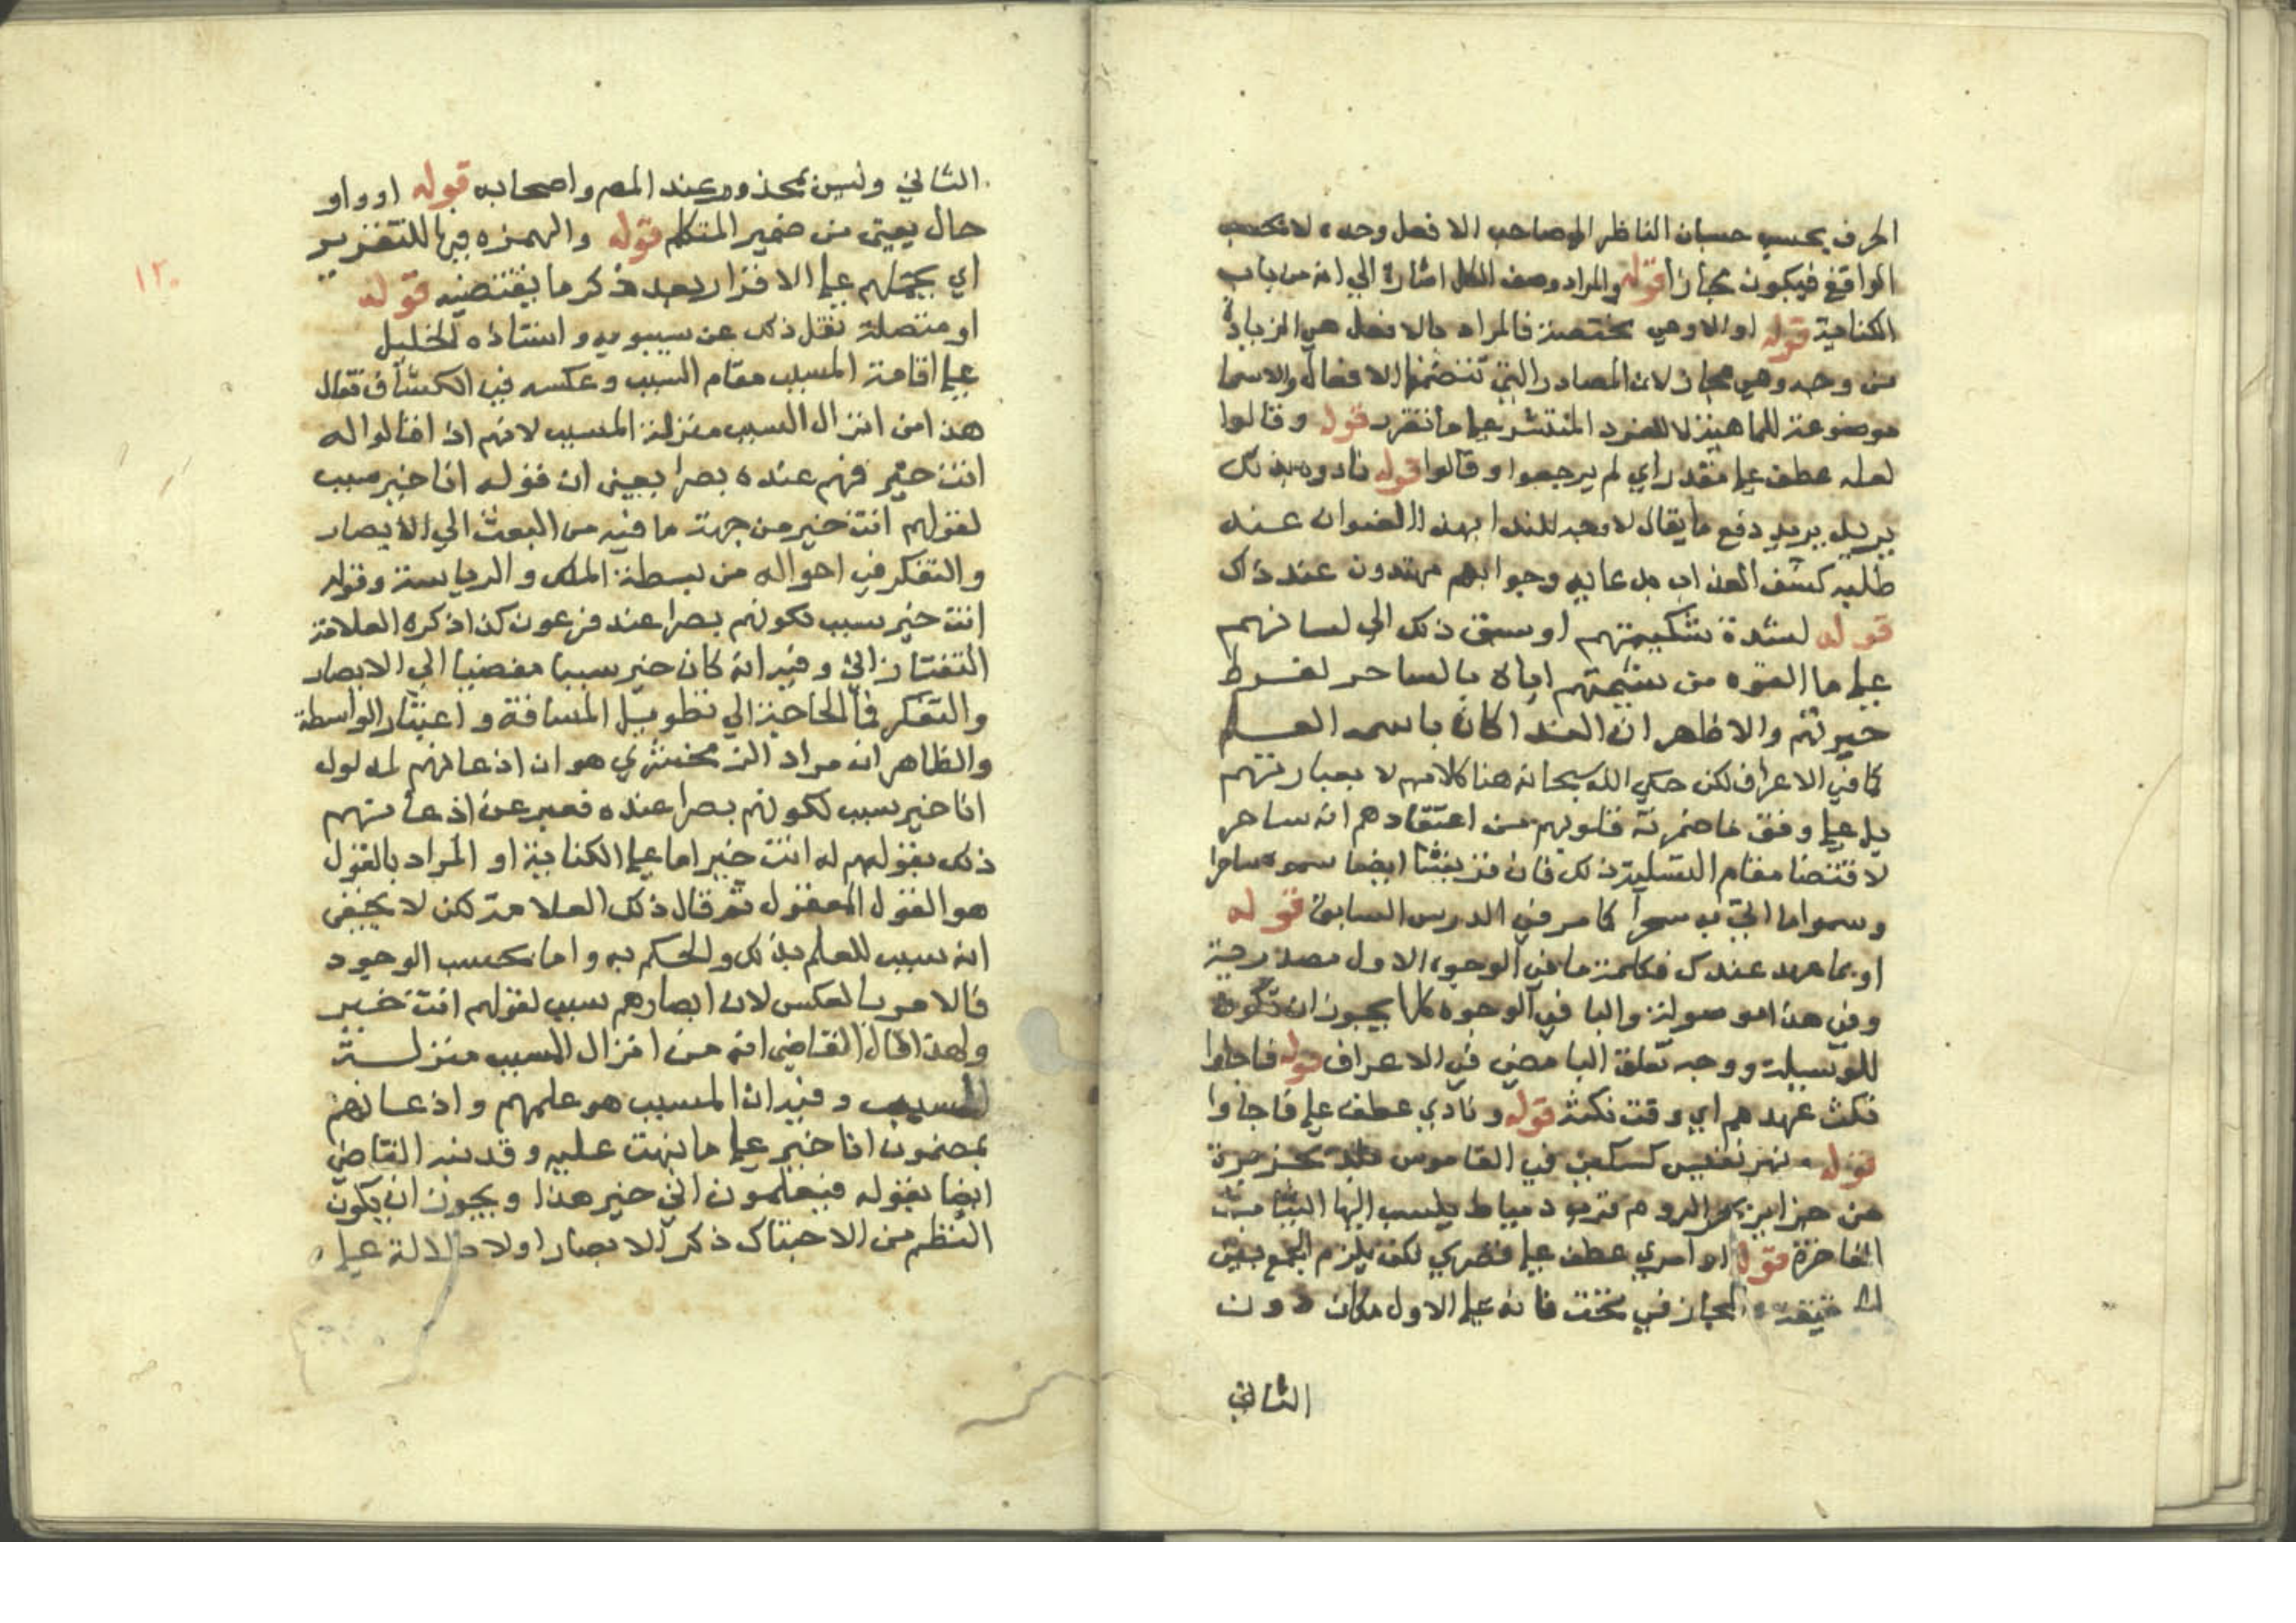 الحرف بحسب حسبان الناظر المصاحب الا فصل وحده لا بحسب
الواقع فيكون مجازا قوله والمراد وصف الكل اشارة الي انه من باب
الكناية قوله او الا وهي مختصة فالمراد بالافضل هي الزيادة
من وجه وهي مجاز لان المصادر التي تتضمنها الافعال والاسما
موضوعة للماهية لا للفرد المنتشر علي ما تقرر قوله وقالوا
لعله عطف علي مقدر اي لم يرجعوا وقالوا قوله نادوه بذلك
يريد دفع ما يقال لا وجه للندا بهذا العنوان عند
طلب كشف العذاب بدعايه وجوابهم مهتدون عند ذلك
قوله لشدة شكيمتهم او سبق ذلك الي لسانهم
علي ما الفوه من تسميتهم اياه بالساحر لفرط
حيرتهم والاظهر ان الندا كان باسمه العلم
كما في الاعراف لكن حكي الله سبحانه هنا كلامهم لا بعبارتهم
بل علي وفق ما اضمرته قلوبهم من اعتقادهم انه ساحر
لاقتضا مقام التسلية ذلك فان قريشا ايضا سموه ساحرا
وسموا ما اتي به سحرا كما مر في الدرس السابق قوله
او بما عهد عندك فكلمة ما في الوجوه الاول مصدرية
وفي هذا موصولة والبا في الوجوه كلها يجوز ان تكون
للوسيلة ووجه تعلق البا مضي في الاعراف قوله فاجاوا
نكث عهدهم اي وقت نكثه قوله ونادي عطف علي فاجاوا
قوله نهر تنيس كسكين في القاموس بلد بجزيرة
من جزاير بحر الروم قرب دمياط ينسب اليها الثياب
الفاخرة قوله او امري عطف علي قصري لكن يلزم الجمع بين
الحقيقة والمجاز في تحت فانه علي الاول مكان دون
الثاني
الثاني وليس بمحذور عند المص واصحابه قوله او واو
حال يعني من ضمير المتكلم قوله والهمزة فيها للتقرير
اي بحملهم علي الاقرار بعد ذكر ما يقتضيه قوله
١٣٠
او متصلة نقل ذلك عن سيبويه واستاذه الخليل
علي اقامة المسبب مقام السبب وعكسه في الكشاف فقال
هذا من انزال السبب منزلة المسبب لانهم اذا قالوا له
انت خير فهم عنده بصرا يعني ان قوله انا خير سبب
لقولهم انت خير من جهة ما فيه من البعث الي الابصار
والتفكر في احواله من بسطة الملك والرياسة وقوله
انت خير سبب لكونهم بصرا عند فرعون كذا ذكره العلامة
التفتازاني وفيه انه كان خير سببا مفضيا الي الابصار
والتفكر فما الحاجة الي تطويل المسافة واعتبار الواسطة
والظاهر ان مراد الزمخشري هو ان اذعانهم لمدلول
انا خير سبب لكونهم بصرا عنده فعبر عن اذعانهم
ذلك بقولهم له انت خير اما علي الكناية او المراد بالقول
هو القول المعقول ثم قال ذلك العلامة لكن لا يخفي
انه سبب للعلم بذلك والحكم به واما بحسب الوجود
فالامر بالعكس لان ابصارهم سبب لقولهم انت خير
ولهذا قال القاضي انه من انزال السبب منزلة
المسبب وفيه ان المسبب هو علمهم واذعانهم
بمضمون انا خير علي ما نبهت عليه وقد نبه القاضي
ايضا بقوله فيعلمون اني خير هذا ويجوز ان يكون
النظم من الاحتباك ذكر الابصار اولا دلالة علي